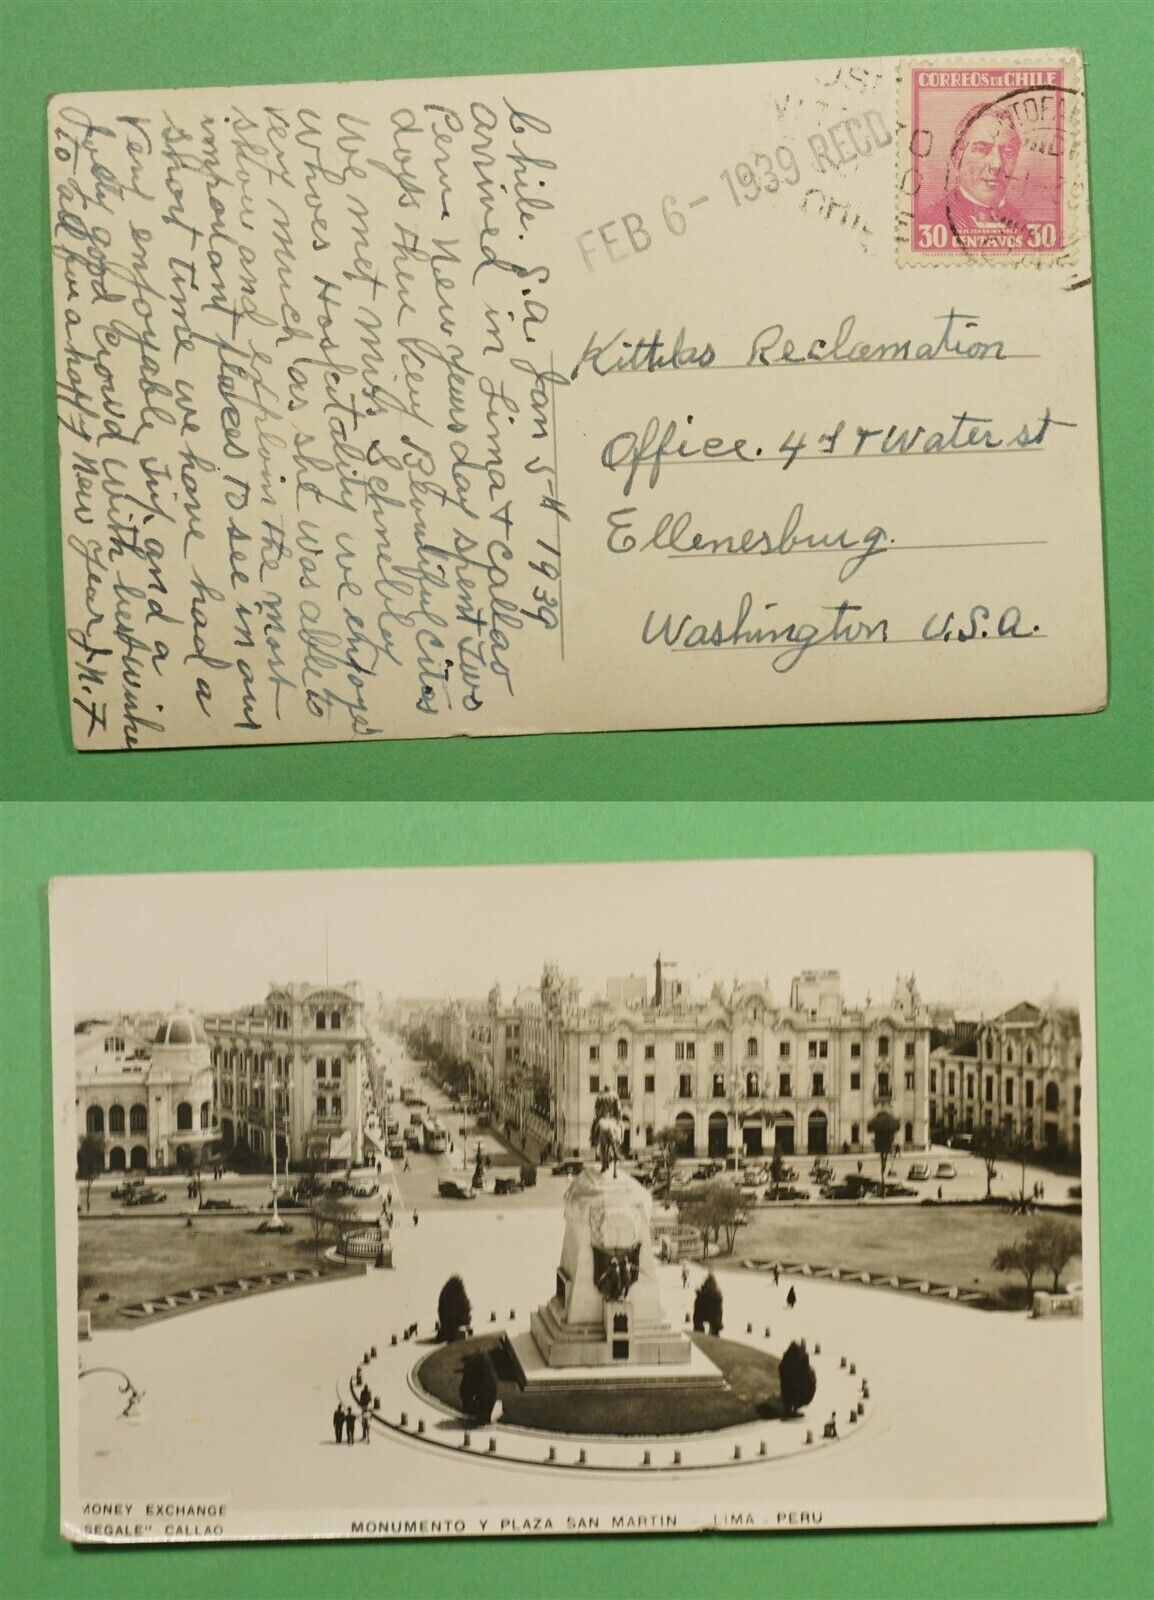 Chile. S.A. Jan 5-H 1939
arrived in Lima + Callao
Peru New years day spent two
days there Very Beautiful Cites
We met Miss Schnebley
Whoes Hospitality we enjoyed
very much as she was able to
show and explain the most
important places to see in our
short time we have had a
very enjoyable trip and a
good crowd with best wishes
to all for a happy New Year J.N.F
CORREOS DE CHILE
30 CENTAVOS 30
FEB 6 - 1939 RECD
Kittitas Reclamation
Office. 4th & Water st
Ellenesburg.
Washington U.S.A.
MONEY EXCHANGE
"SEGALE" CALLAO
MONUMENTO Y PLAZA SAN MARTIN . LIMA . PERU